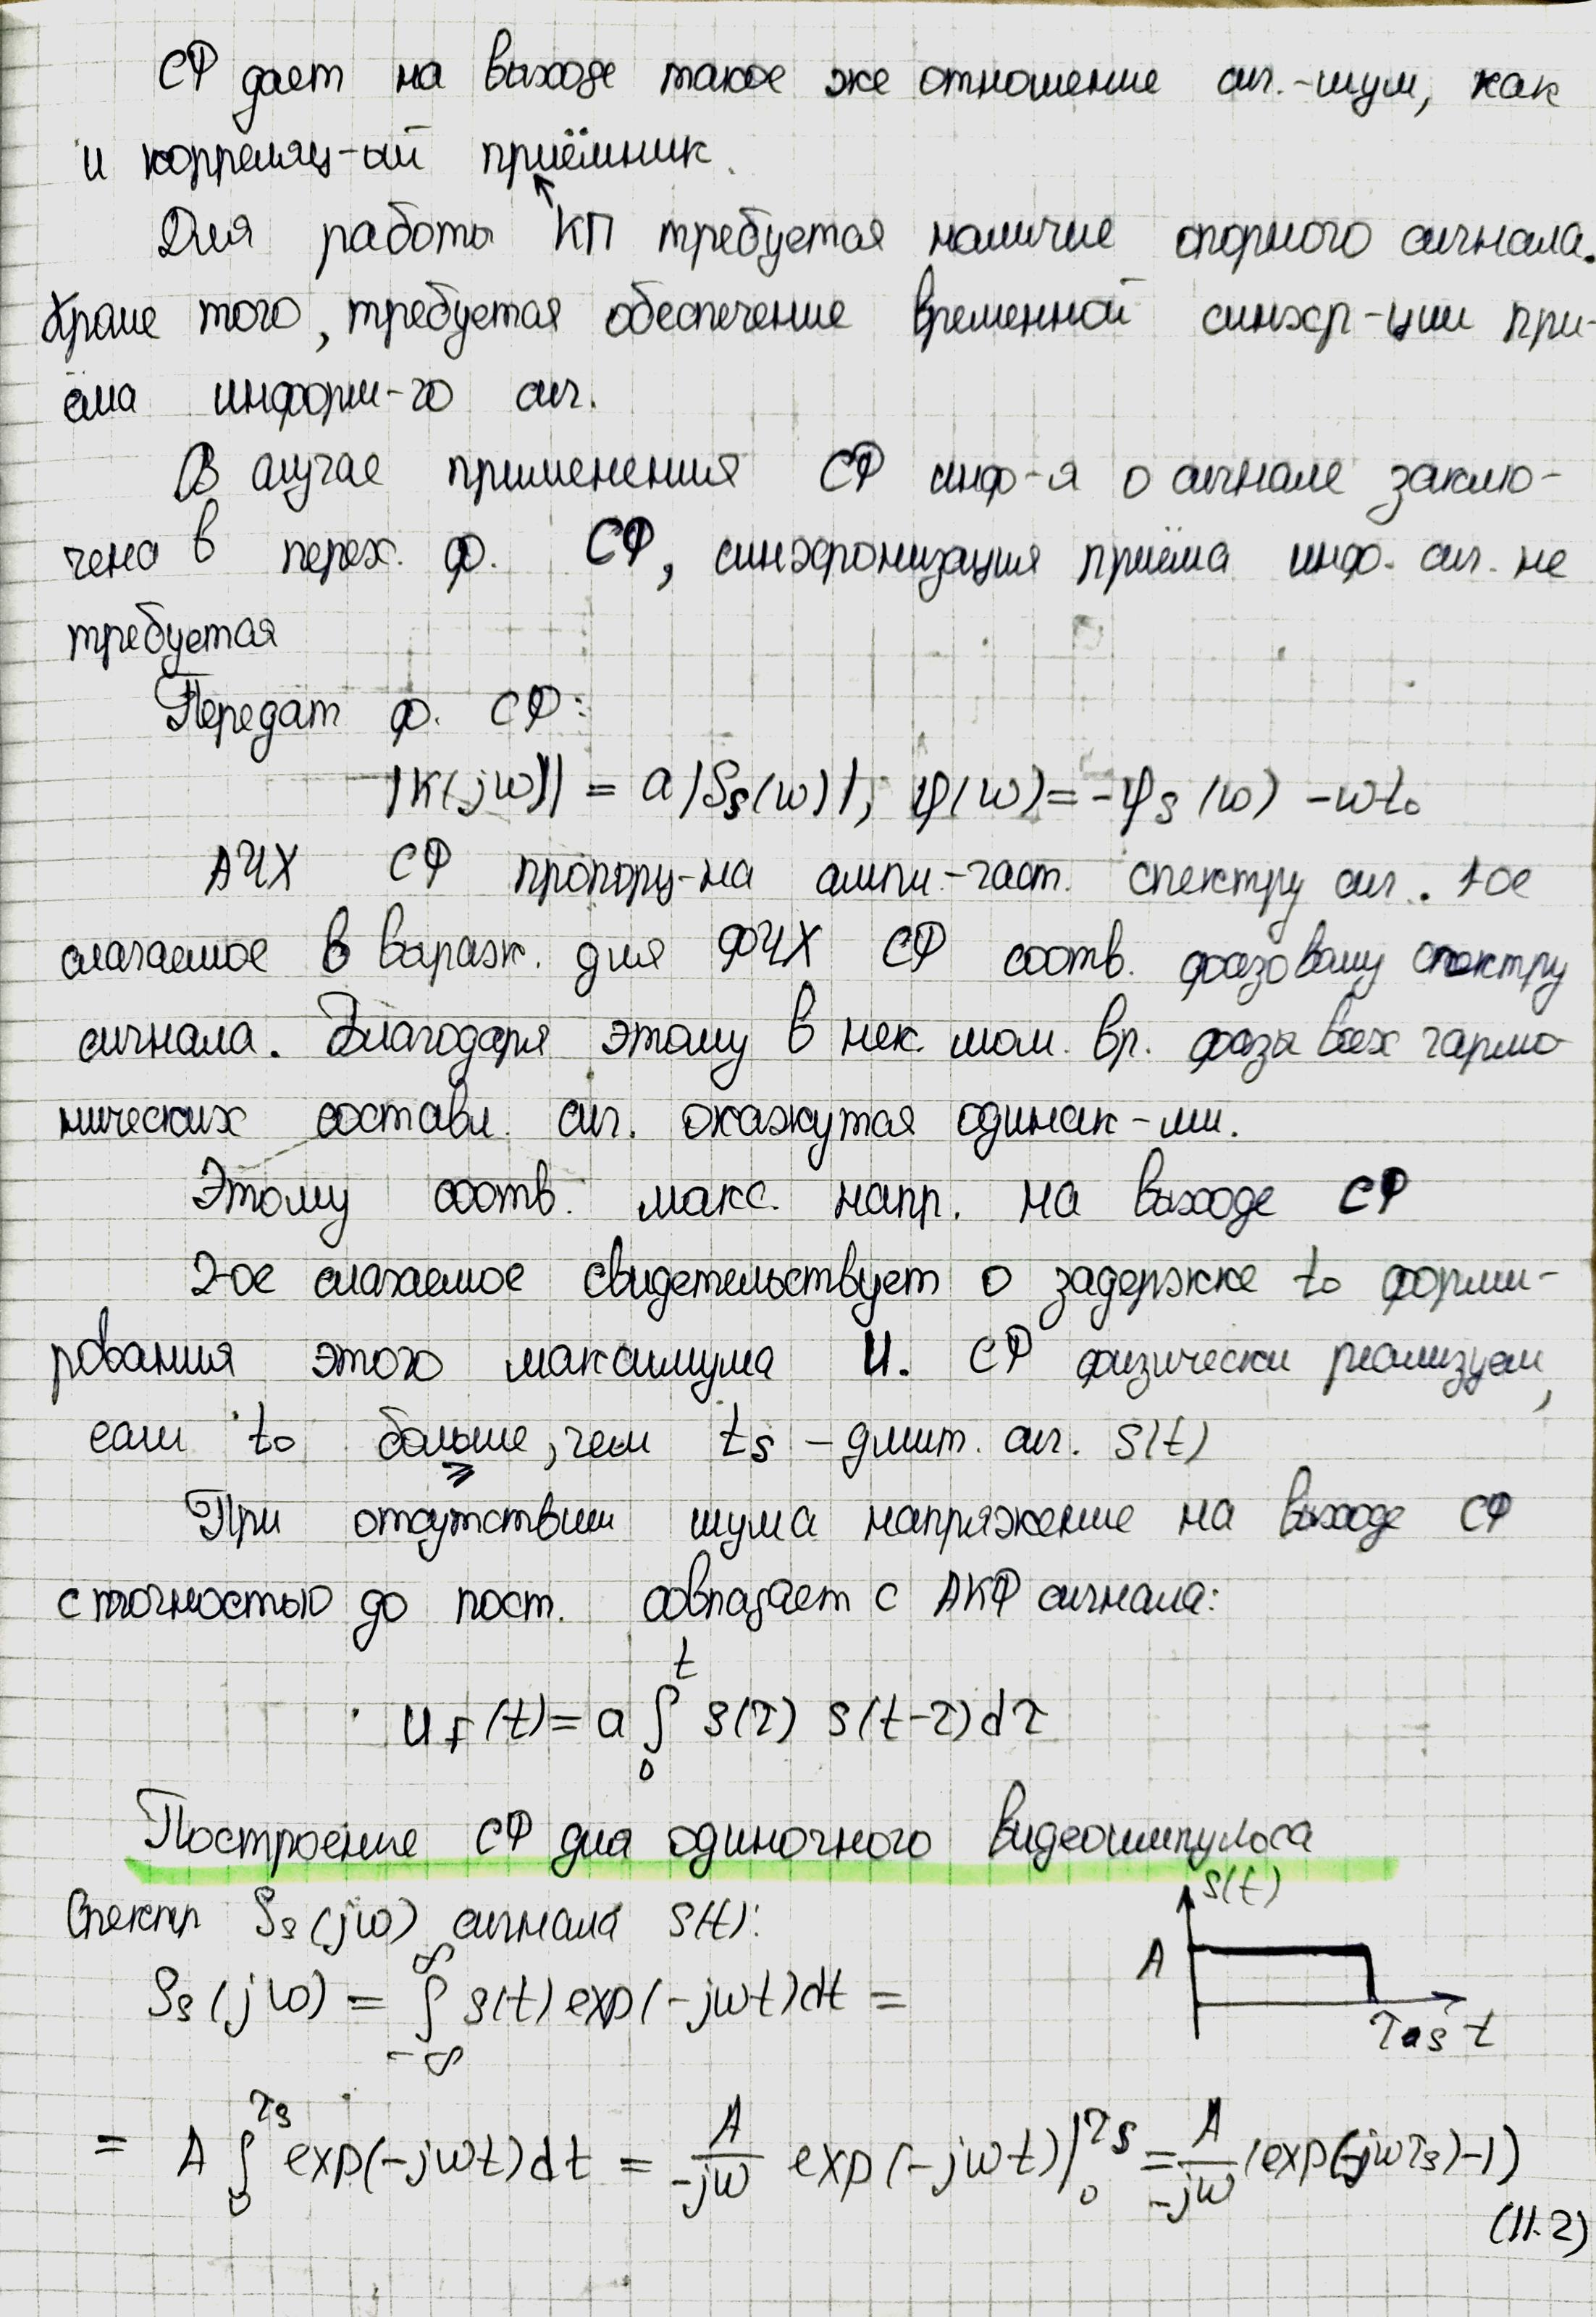 СФ дает на выходе такое же отношение сиг.-шум, как
и корреляц-ый приёмник.
Для работы КП требуется наличие опорного сигнала.
Кроме того, требуется обеспечение временной синхр-ции при-
ёма информ-го сиг.
В случае применения СФ инф-я о сигнале заклю-
чена в перех. ф. СФ, синхронизация приёма инф. сиг. не
требуется
Передат ф. СФ:
|K(jω)| = a|Ss(ω)|; φ(ω) = -φs(ω) - ωt₀
АЧХ СФ пропорц-на ампл.-част. спектру сиг. 1-ое
слагаемое в выраж. для ФЧХ СФ соотв. фазовому спектру
сигнала. Благодаря этому в нек. мом. вр. фазы всех гармо-
нических составл. сиг. окажутся одинак-ми.
Этому соотв. макс. напр. на выходе СФ
2-ое слагаемое свидетельствует о задержке t₀ форми-
рования этого максимума U. СФ физически реализуем,
если t₀ больше, чем ts – длит. сиг. s(t)
⩾
При отсутствии шума напряжение на выходе СФ
с точностью до пост. совпадает с АКФ сигнала:
u_f(t) = a ∫₀ᵗ s(τ) s(t-τ) dτ
Построение СФ для одиночного видеоимпульса
Спектр Ss(jω) сигнала s(t):
s(t)
A
τs t
Ss(jω) = ∫_{-∞}^{∞} s(t) exp(-jωt) dt =
= A ∫₀^{τs} exp(-jωt) dt = A/(-jω) exp(-jωt)|₀^{τs} = A/(-jω) (exp(-jωτs)-1)
(11.2)